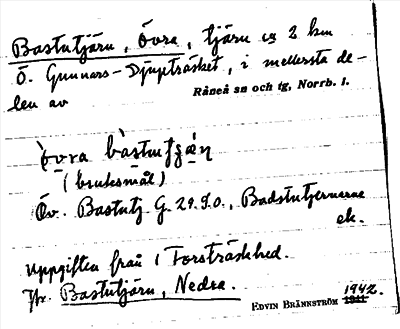 Bastutjärn, Övra, tjärn ca 2 km
Ö. Gunnars-Djupträsket, i mellersta de-
len av
Råneå sn och tg, Norrb. l.
òvra bàstutjæ̣n
(bruksmål)
Öv. Bastutj. G. 29.9.0., Badstutjernarne
ek.
Uppgiften från 1 Forsträskhed.
Jfr. Bastutjärn, Nedra.
EDVIN BRÄNNSTRÖM 1942.
1941.